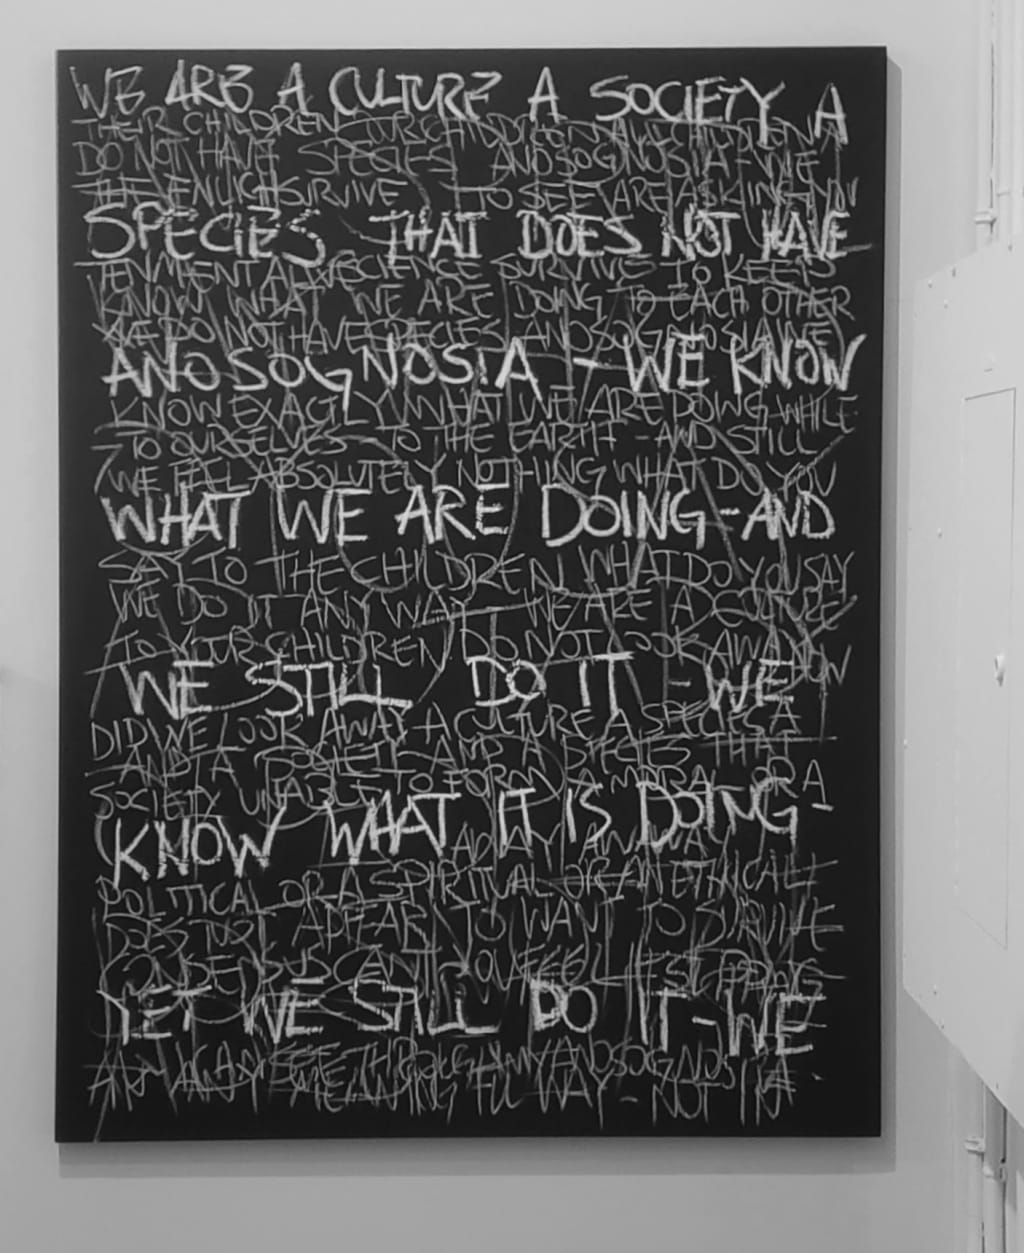 WE ARE A CULTURE A SOCIETY A
THEIR CHILDREN
DO NOT HAVE SPECIES ANOSOGNOSIA - WE
SURVIVE TO SEE ARE ASKING YOU
SPECIES THAT DOES NOT HAVE
SURVIVE TO KEEP
KNOW WHAT WE ARE DOING TO EACH OTHER
WE DO NOT HAVE SPECIES ANOSOGNOSIA WE
ANOSOGNOSIA - WE KNOW
KNOW EXACTLY WHAT WE ARE DOING WHILE
TO OURSELVES TO THE EARTH - AND STILL
WE FEEL ABSOLUTELY NOTHING WHAT DO YOU
WHAT WE ARE DOING - AND
SAY TO THE CHILDREN WHAT DO YOU SAY
WE DO IT ANY WAY - WE ARE A CULTURE
TO YOUR CHILDREN DO NOT LOOK AWAY
WE STILL DO IT - WE
DID WE LOOK AWAY - A CULTURE A SPECIES A
AND A SOCIETY - AND A SPECIES THAT
SOCIETY UNABLE TO FORM A MORAL OR A
KNOW WHAT IT IS DOING -
POLITICAL OR A SPIRITUAL OR AN ETHICAL
DOES NOT APPEAR TO WANT TO SURVIVE
CONSENSUS
YET WE STILL DO IT - WE
WAY - NOT